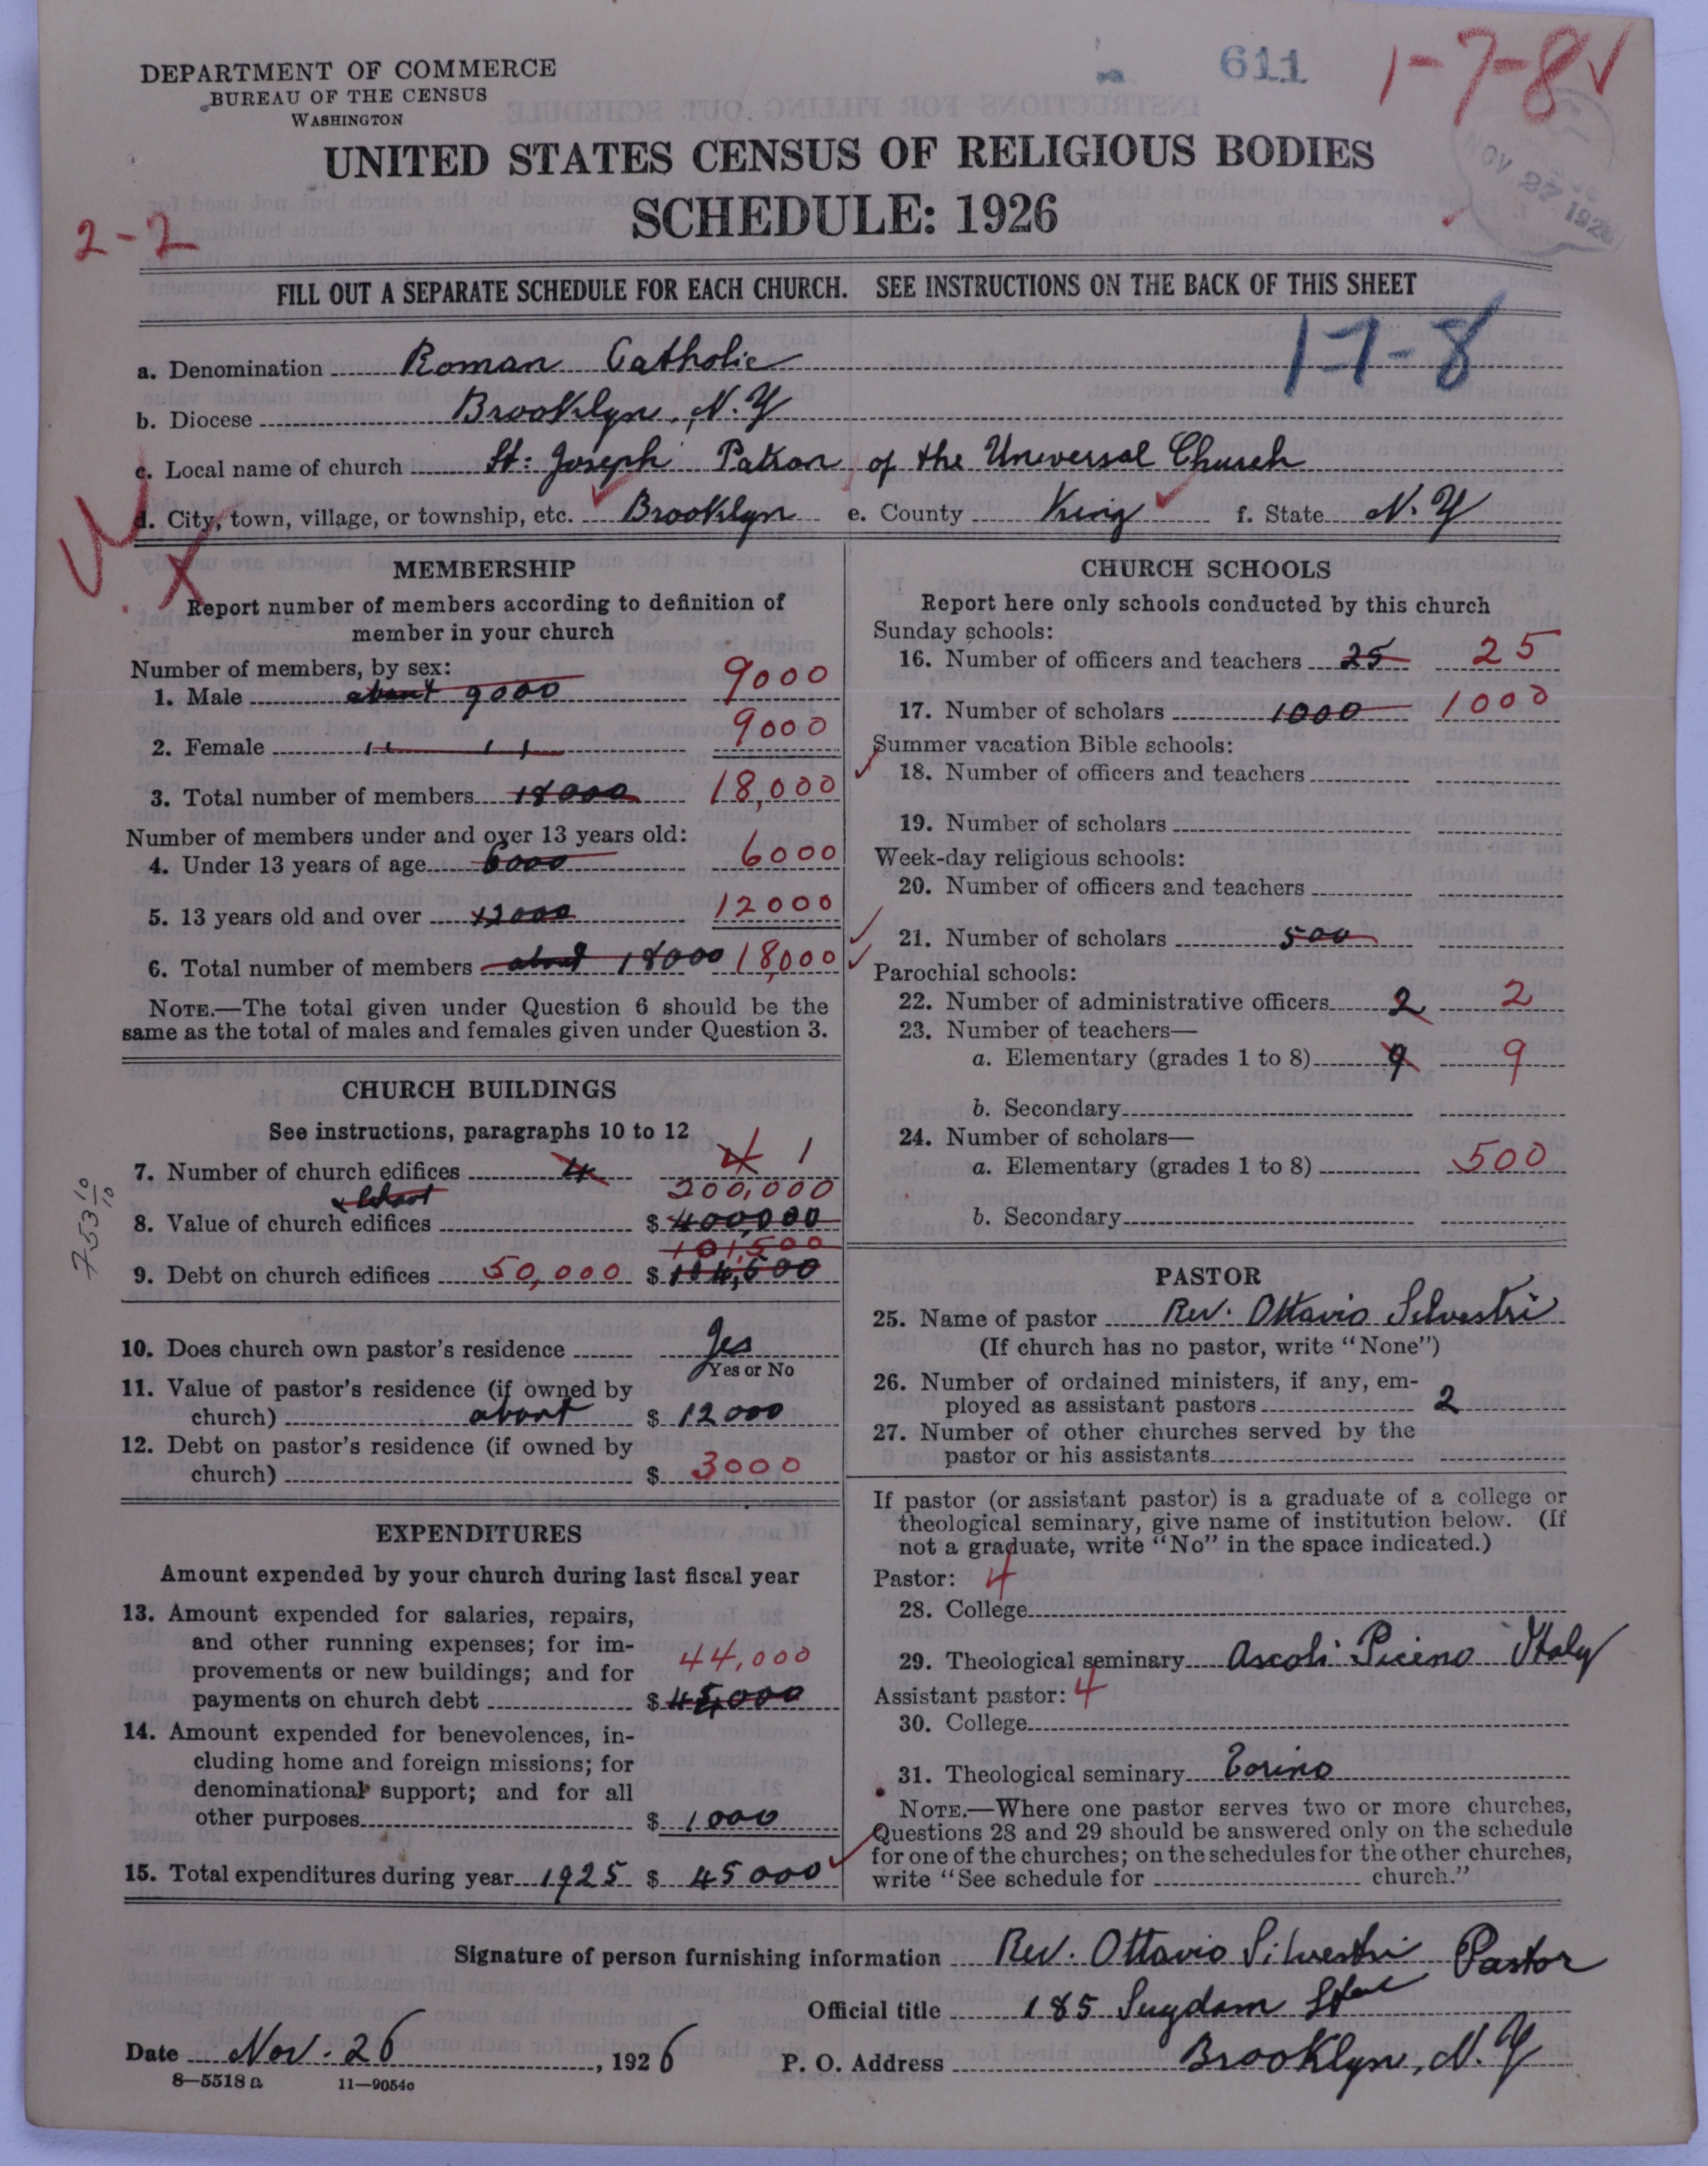 DEPARTMENT OF COMMERCE
BUREAU OF THE CENSUS
WASHINGTON
611
1-7-8
NOV 27 1926
UNITED STATES CENSUS OF RELIGIOUS BODIES
SCHEDULE: 1926
2-2
FILL OUT A SEPARATE SCHEDULE FOR EACH CHURCH. SEE INSTRUCTIONS ON THE BACK OF THIS SHEET
1-7-8
a. Denomination Roman Catholic
b. Diocese Brooklyn, N.Y
c. Local name of church St: Joseph Patron of the Universal Church
d. City, town, village, or township, etc. Brooklyn e. County King f. State N.Y
MEMBERSHIP
Report number of members according to definition of
member in your church
Number of members, by sex:
1. Male about 9000 9000
2. Female " " 9000
3. Total number of members 18000 18,000
Number of members under and over 13 years old:
4. Under 13 years of age 6000 6000
5. 13 years old and over 12000 12000
6. Total number of members about 18000 18,000
NOTE.—The total given under Question 6 should be the
same as the total of males and females given under Question 3.
CHURCH BUILDINGS
See instructions, paragraphs 10 to 12
7. Number of church edifices 4 4 1
& School 200,000
8. Value of church edifices $ 400,000
101,500
9. Debt on church edifices 50,000 $ 104,500
753 10/10
10. Does church own pastor's residence Yes
Yes or No
11. Value of pastor's residence (if owned by
church) about $ 12000
12. Debt on pastor's residence (if owned by
church) $ 3000
EXPENDITURES
Amount expended by your church during last fiscal year
13. Amount expended for salaries, repairs,
and other running expenses; for im-
provements or new buildings; and for 44,000
payments on church debt $ 45,000
14. Amount expended for benevolences, in-
cluding home and foreign missions; for
denominational support; and for all
other purposes $ 1000
15. Total expenditures during year 1925 $ 45000
CHURCH SCHOOLS
Report here only schools conducted by this church
Sunday schools:
16. Number of officers and teachers 25 25
17. Number of scholars 1000 1000
Summer vacation Bible schools:
18. Number of officers and teachers
19. Number of scholars
Week-day religious schools:
20. Number of officers and teachers
21. Number of scholars 500
Parochial schools:
22. Number of administrative officers 2 2
23. Number of teachers—
a. Elementary (grades 1 to 8) 9 9
b. Secondary
24. Number of scholars—
a. Elementary (grades 1 to 8) 500
b. Secondary
PASTOR
25. Name of pastor Rev. Ottavio Silvestri
(If church has no pastor, write "None")
26. Number of ordained ministers, if any, em-
ployed as assistant pastors 2
27. Number of other churches served by the
pastor or his assistants
If pastor (or assistant pastor) is a graduate of a college or
theological seminary, give name of institution below. (If
not a graduate, write "No" in the space indicated.)
Pastor: 4
28. College
29. Theological seminary Ascoli Piceno Italy
Assistant pastor: 4
30. College
31. Theological seminary Torino
NOTE.—Where one pastor serves two or more churches,
Questions 28 and 29 should be answered only on the schedule
for one of the churches; on the schedules for the other churches,
write "See schedule for church."
Signature of person furnishing information Rev. Ottavio Silvestri Pastor
Official title 185 Suydam Street
Date Nov. 26, 1926 P. O. Address Brooklyn, N.Y
8—5518 a 11—9054c